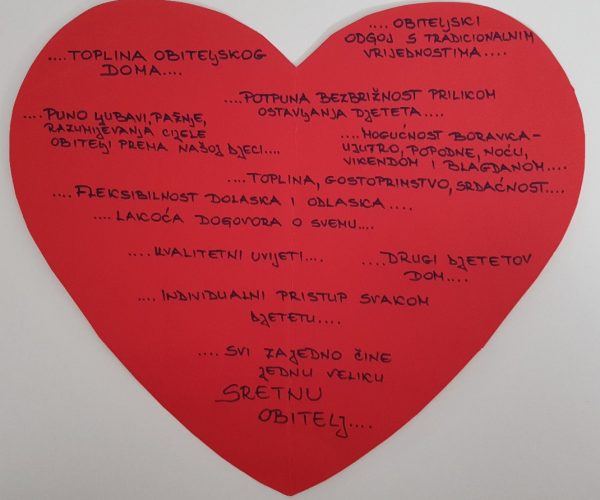 ....TOPLINA OBITELJSKOG
DOMA....
....OBITELJSKI
ODGOJ S TRADICIONALNIM
VRIJEDNOSTIMA....
....POTPUNA BEZBRIŽNOST PRILIKOM
OSTAVLJANJA DJETETA....
....PUNO LJUBAVI, PAŽNJE,
RAZUMIJEVANJA CIJELE
OBITELJI PREMA NAŠOJ DJECI....
....MOGUĆNOST BORAVKA-
UJUTRO, POPODNE, NOĆU,
VIKENDOM I BLAGDANOM....
....TOPLINA, GOSTOPRIMSTVO, SRDAČNOST....
....FLEKSIBILNOST DOLASKA I ODLASKA....
....LAKOĆA DOGOVORA O SVEMU....
....KVALITETNI UVIJETI....
....DRUGI DJETETOV
DOM....
....INDIVIDUALNI PRISTUP SVAKOM
DJETETU....
....SVI ZAJEDNO ČINE
JEDNU VELIKU
SRETNU
OBITELJ....